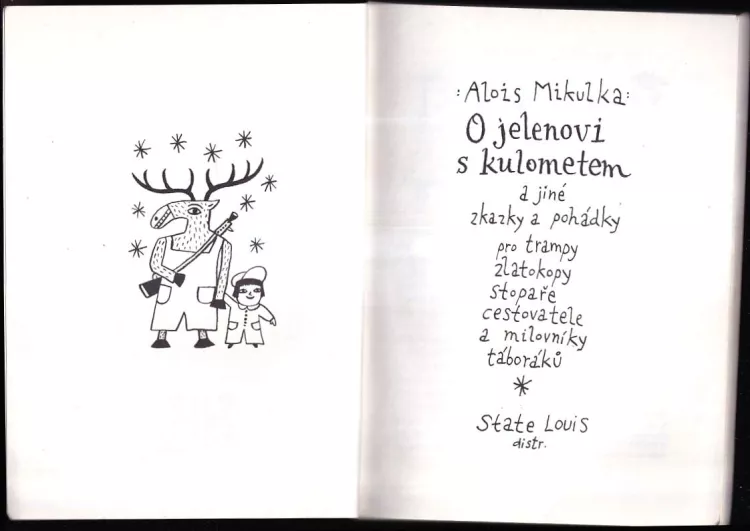 : Alois Mikulka :
O jelenovi
s kulometem
a jiné
zkazky a pohádky
pro trampy
zlatokopy
stopaře
cestovatele
a milovníky
táboráků
*
State Louis
distr.